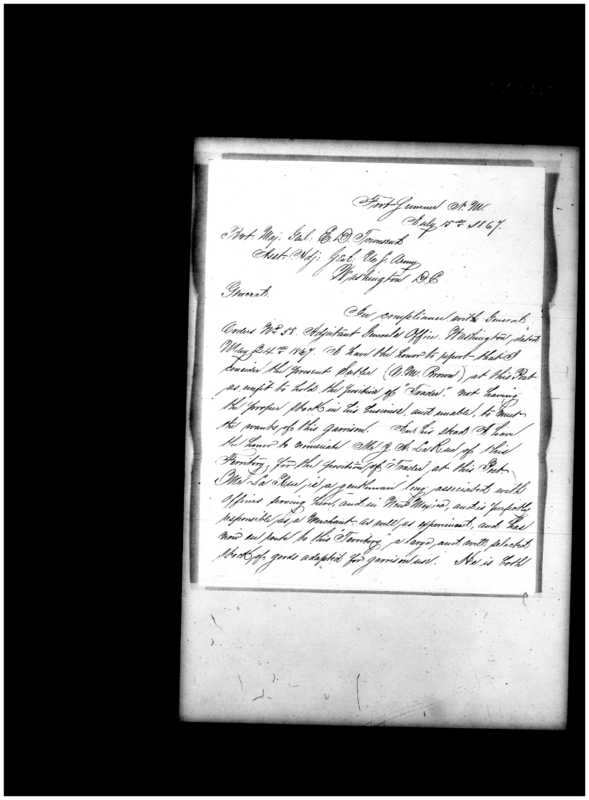 Fort Sumner N. M.
July 15th 1867.
Bvt. Maj. Genl. E. D. Townsend
Asst. Adj. Genl. U. S. Army
Washington D. C.
General.
In compliance with General
Orders No. 58. Adjutant Generals Office. Washington, dated
May 24th 1867. I have the honor to report that I
consider the present Sutler (A. M. Brown), at this Post
as unfit to hold the position of "Trader". not having
the proper stock in his business, and unable, to meet
the wants, of this garrison. In his stead I have
the honor to nominate Mr J. A. LaRue of this
Territory, for the position, of Trader, at this Post.
Mr La Rue is a gentleman long associated with
Officers serving here, and in New Mexico, and is perfectly
responsible as a merchant as well as experienced, and has
now en route to this "Territory" a large, and well selected
stock, of goods adapted for garrison use. He is both